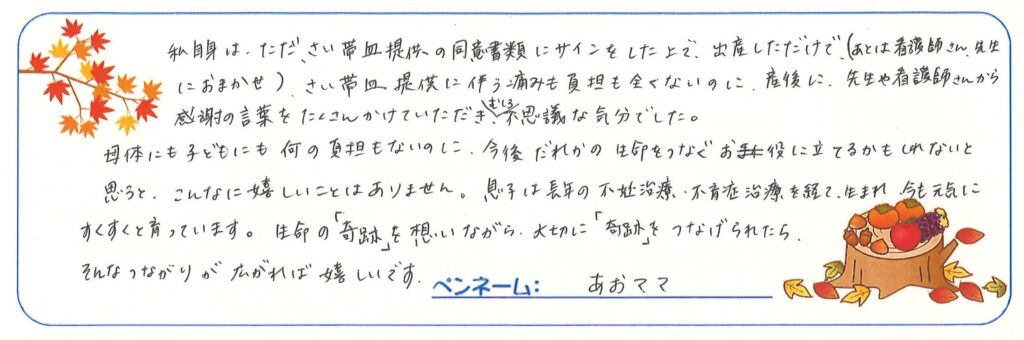 私自身は、ただ、さい帯血提供の同意書類にサインをした上で、出産しただけで(あとは看護師さん、先生
におまかせ)、さい帯血提供に伴う痛みも負担も全くないのに、産後に、先生や看護師さんから
感謝の言葉をたくさんかけていただき、むしろ不思議な気分でした。
母体にも子どもにも何の負担もないのに、今後だれかの生命をつなぐお役に立てるかもしれないと
思うと、こんなに嬉しいことはありません。息子は長年の不妊治療・不育症治療を経て、生まれ、今も元気に
すくすくと育っています。生命の「奇跡」を想いながら、大切に「奇跡」をつなげられたら、
そんなつながりが広がれば嬉しいです。
ペンネーム: あおママ